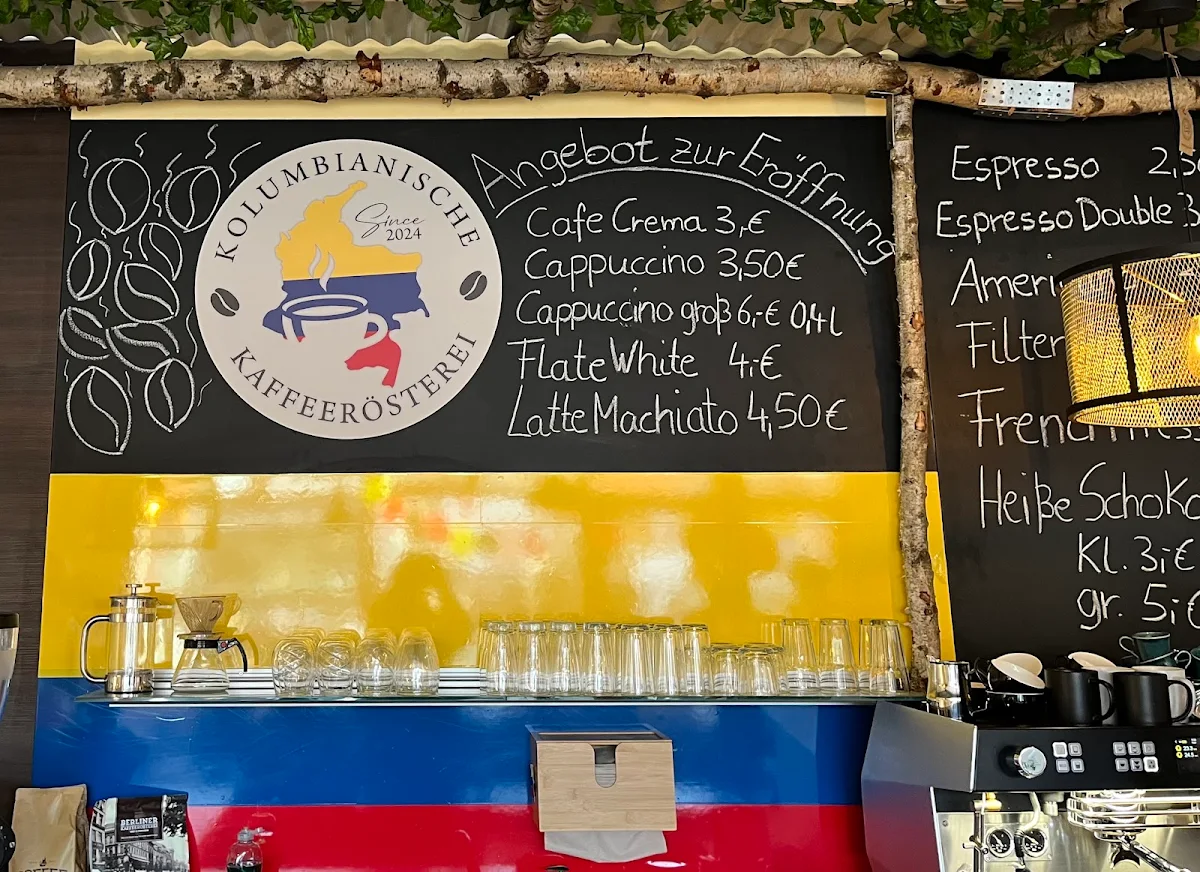 KOLUMBIANISCHE
Since
2024
KAFFEERÖSTEREI
Angebot zur Eröffnung
Cafe Crema 3,-€
Cappuccino 3,50€
Cappuccino groß 6,-€ 0,4l
Flate White 4,-€
Latte Machiato 4,50€
Espresso
Espresso Double
Filter
Heiße
Kl. 3,-€
gr. 5,-€
BERLINER